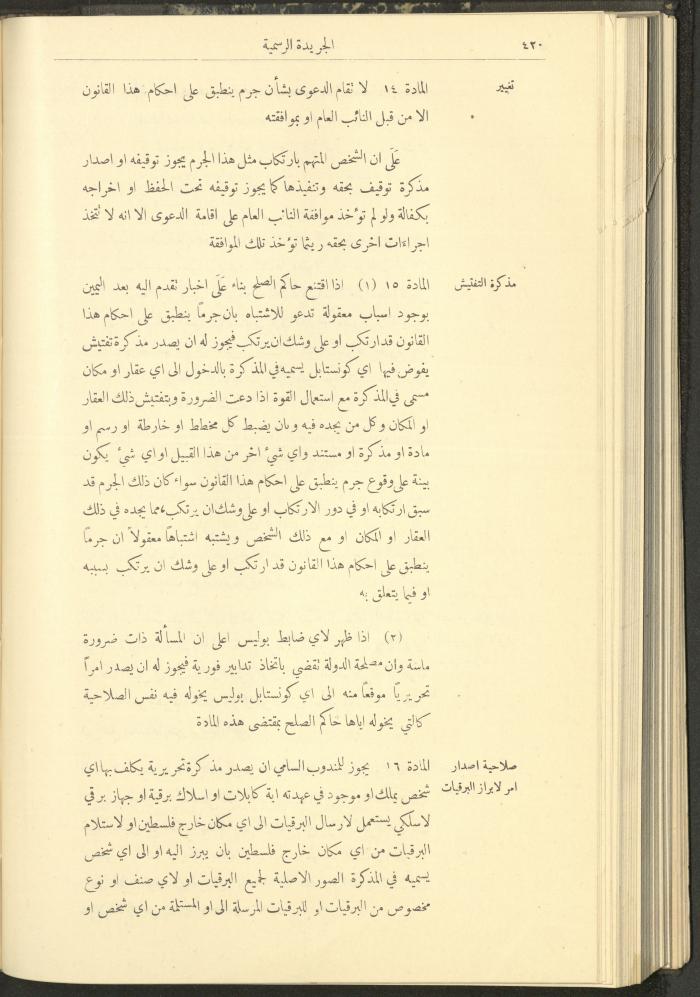 ٤٢٠
الجريدة الرسمية
تغيير
المادة ١٤ لا تقام الدعوى بشأن جرم ينطبق على احكام هذا القانون
الا من قبل النائب العام او بموافقته
عَلَى ان الشخص المتهم بارتكاب مثل هذا الجرم يجوز توقيفه او اصدار
مذكرة توقيف بحقه وتنفيذها كما يجوز توقيفه تحت الحفظ او اخراجه
بكفالة ولو لم تؤخذ موافقة النائب العام على اقامة الدعوى الا انه لا تتخذ
اجراءات اخرى بحقه ريثما تؤخذ تلك الموافقة
مذكرة التفتيش
المادة ١٥ (١) اذا اقتنع حاكم الصلح بناء عَلَى اخبار تقدم اليه بعد اليمين
بوجود اسباب معقولة تدعو للاشتباه بان جرمًا ينطبق على احكام هذا
القانون قد ارتكب او على وشك ان يرتكب فيجوز له ان يصدر مذكرة تفتيش
يفوض فيها اي كونستابل يسميه في المذكرة بالدخول الى اي عقار او مكان
مسمى في المذكرة مع استعمال القوة اذا دعت الضرورة وبتفتيش ذلك العقار
او المكان وكل من يجده فيه وبان يضبط كل مخطط او خارطة او رسم او
مادة او مذكرة او مستند واي شيء اخر من هذا القبيل او اي شيء يكون
بينة على وقوع جرم ينطبق على احكام هذا القانون سواء كان ذلك الجرم قد
سبق ارتكابه او في دور الارتكاب او على وشك ان يرتكب، مما يجده في ذلك
العقار او المكان او مع ذلك الشخص ويشتبه اشتباهًا معقولاً ان جرمًا
ينطبق على احكام هذا القانون قد ارتكب او على وشك ان يرتكب بسببه
او فيما يتعلق به
(٢) اذا ظهر لاي ضابط بوليس اعلى ان المسألة ذات ضرورة
ماسة وان مصلحة الدولة تقضي باتخاذ تدابير فورية فيجوز له ان يصدر امرًا
تحريريًا موقعًا منه الى اي كونستابل بوليس يخوله فيه نفس الصلاحية
كالتي يخوله اياها حاكم الصلح بمقتضى هذه المادة
صلاحية اصدار
امر لابراز البرقيات
المادة ١٦ يجوز للمندوب السامي ان يصدر مذكرة تحريرية يكلف بها اي
شخص يملك او موجود في عهدته اية كابلات او اسلاك برقية او جهاز برقي
لاسلكي يستعمل لارسال البرقيات الى اي مكان خارج فلسطين او لاستلام
البرقيات من اي مكان خارج فلسطين بان يبرز اليه او الى اي شخص
يسميه في المذكرة الصور الاصلية لجميع البرقيات او لاي صنف او نوع
مخصوص من البرقيات او للبرقيات المرسلة الى او المستلمة من اي شخص او